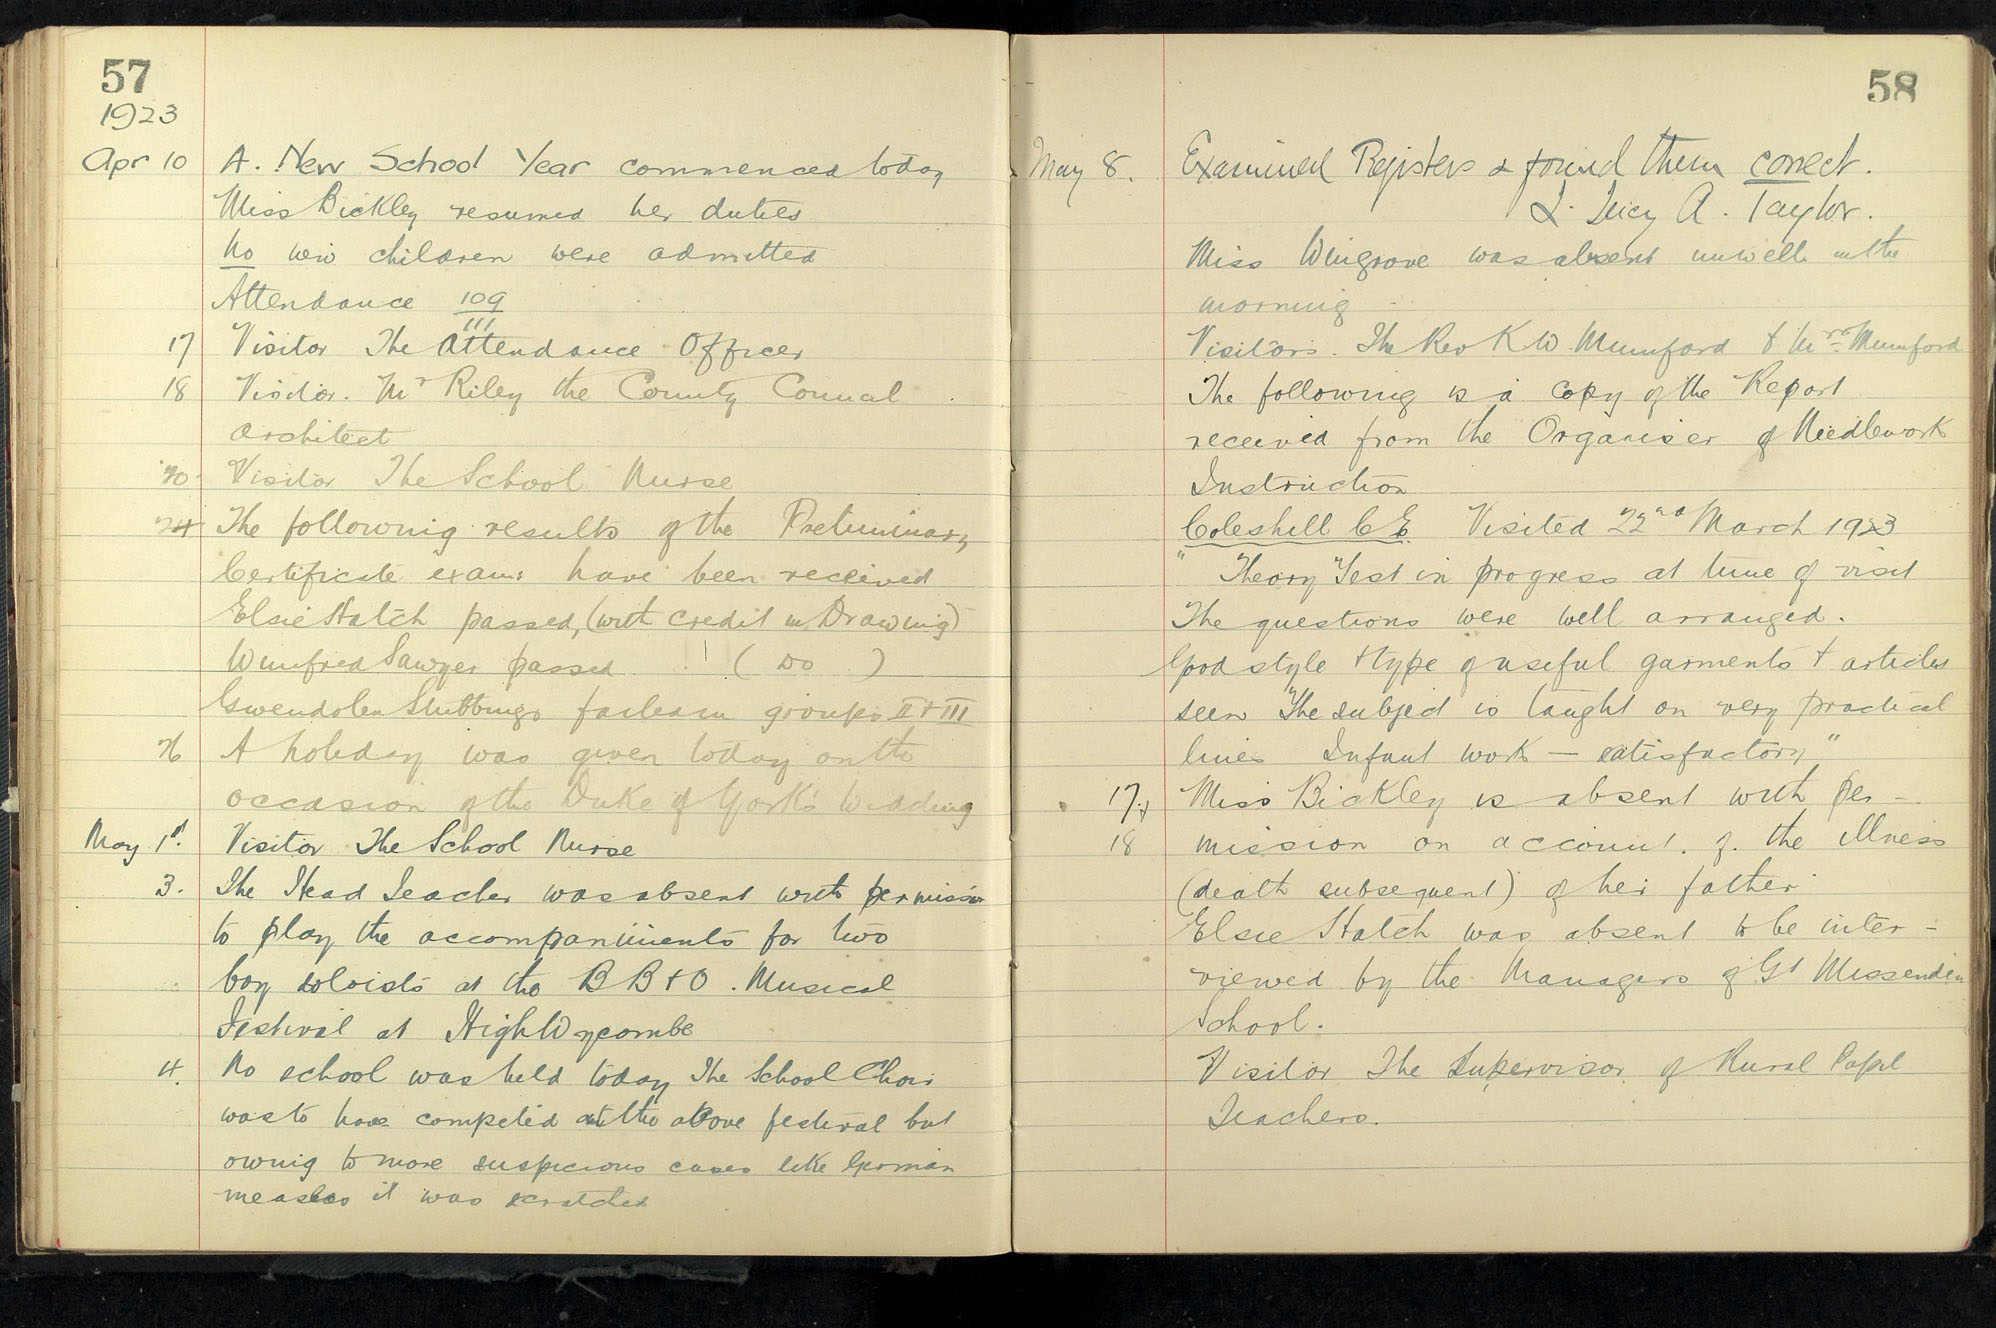 57
1923
Apr 10 A. New School Year commenced today
Miss Bickley resumed her duties
No new children were admitted
Attendance 109
111
17 Visitor The Attendance Officer
18 Visitor. Mr Riley the County Council
Architect
20 Visitor The School Nurse
24 The following results of the Preliminary
Certificate exam: have been received
Elsie Hatch passed, (with credit in Drawing)
Winifred Sawyer passed ( Do )
Gwendolen Stubbings failed in groups II & III
26 A holiday was given today on the
occasion of the Duke of York's Wedding
May 1st. Visitor The School Nurse
3. The Head Teacher was absent with permission
to play the accompaniments for two
boy soloists at the B B & O. Musical
Festival at High Wycombe
4. No school was held today The School Choir
was to have competed at the above festival but
owing to more suspicious cases like German
measles it was scratched
58
May 8. Examined Registers & found them correct.
L. Lucy A. Taylor.
Miss Wingrove was absent unwell in the
morning
Visitors. The Rev K W. Mumford & Mrs Mumford
The following is a copy of the Report
received from the Organiser of Needlework
Instruction
Coleshill C E. Visited 22nd March 1923
" Theory Test in progress at time of visit
The questions were well arranged.
Good style & type of useful garments & articles
seen "The subject is taught on very practical
lines Infant work — satisfactory"
17. Miss Bickley is absent with per-
18 mission on account. of. the illness
(death subsequent) of her father
Elsie Hatch was absent to be inter-
viewed by the Managers of Gt Missenden
School.
Visitor The Supervisor of Rural Pupil
Teachers.